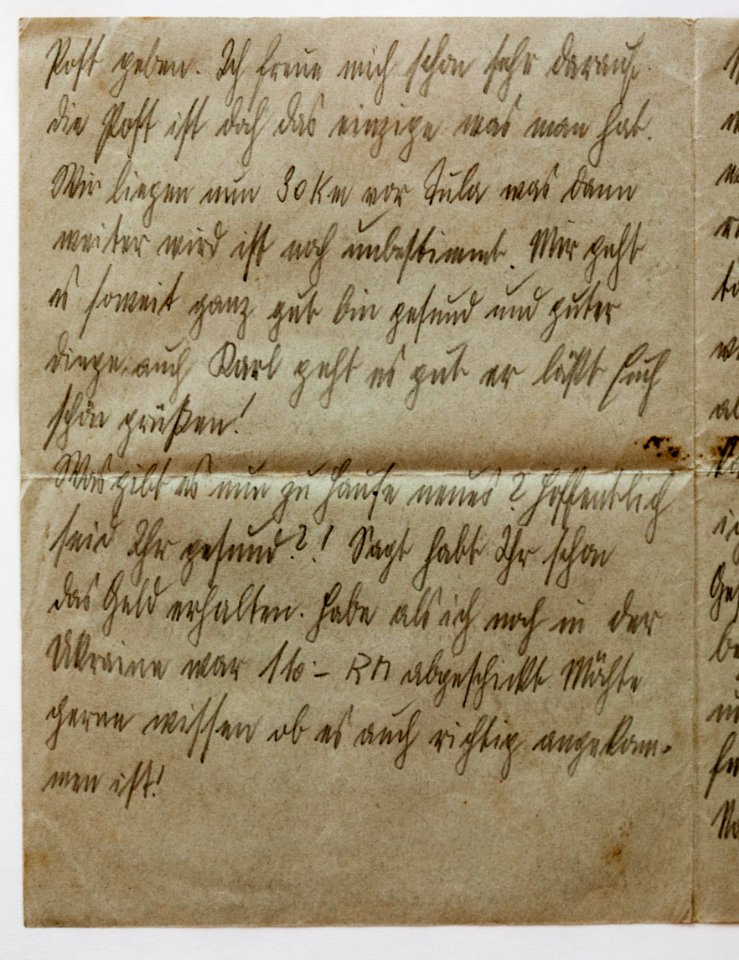 Post geben. Ich freue mich schon sehr darauf.
die Post ist doch das einzige was man hat.
Wir liegen nun 30 Km vor Tula was dann
weiter wird ist noch unbestimmt. Mir geht
es soweit ganz gut bin gesund und guter
dinge auch Karl geht es gut er läßt Euch
schön grüßen!
Was gibt es nun zu Hause neues? Hoffentlich
seid Ihr gesund?! Sagt habt Ihr schon
das Geld erhalten. Habe als ich noch in der
Ukraine war RM abgeschickt Möchte
gerne wissen ob es auch richtig angekom-
men ist!